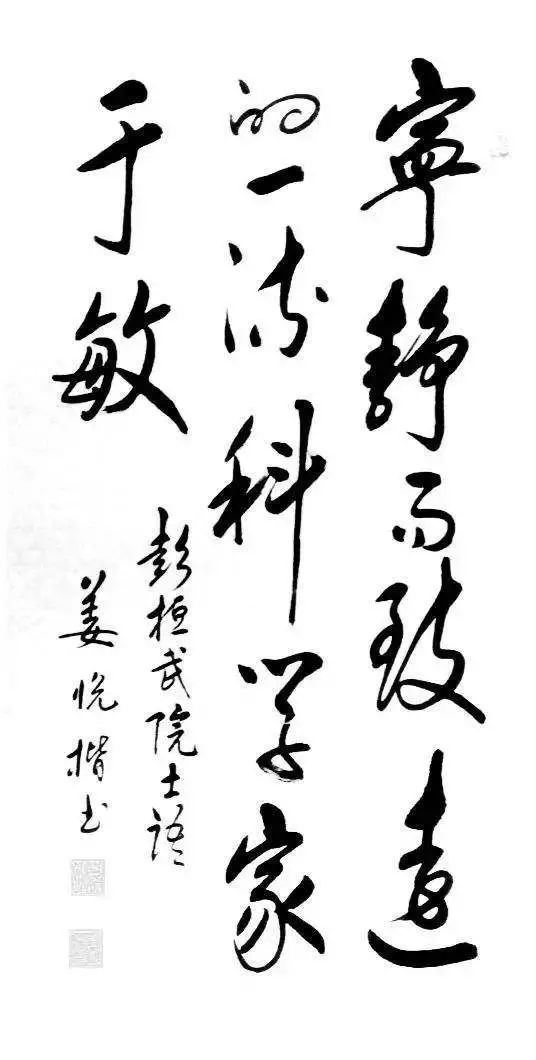 寧静而致遠
的一流科学家
于敏
彭桓武院士語
姜悦楷书